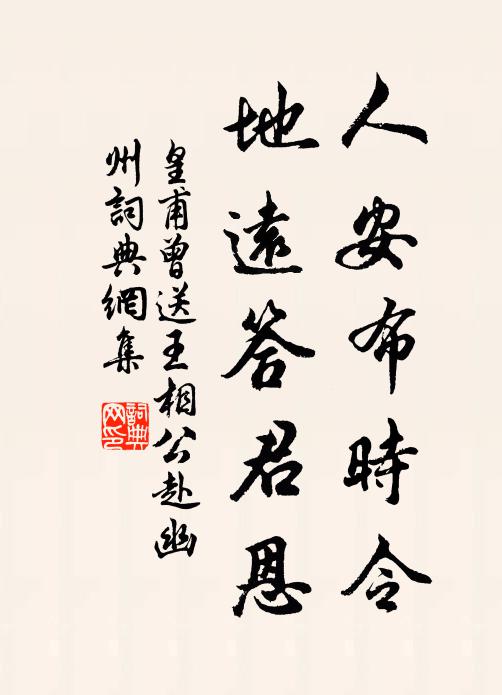 人安布時令
地遠答君恩
皇甫曾送王相公赴幽
州詞典網集
詞典
网印